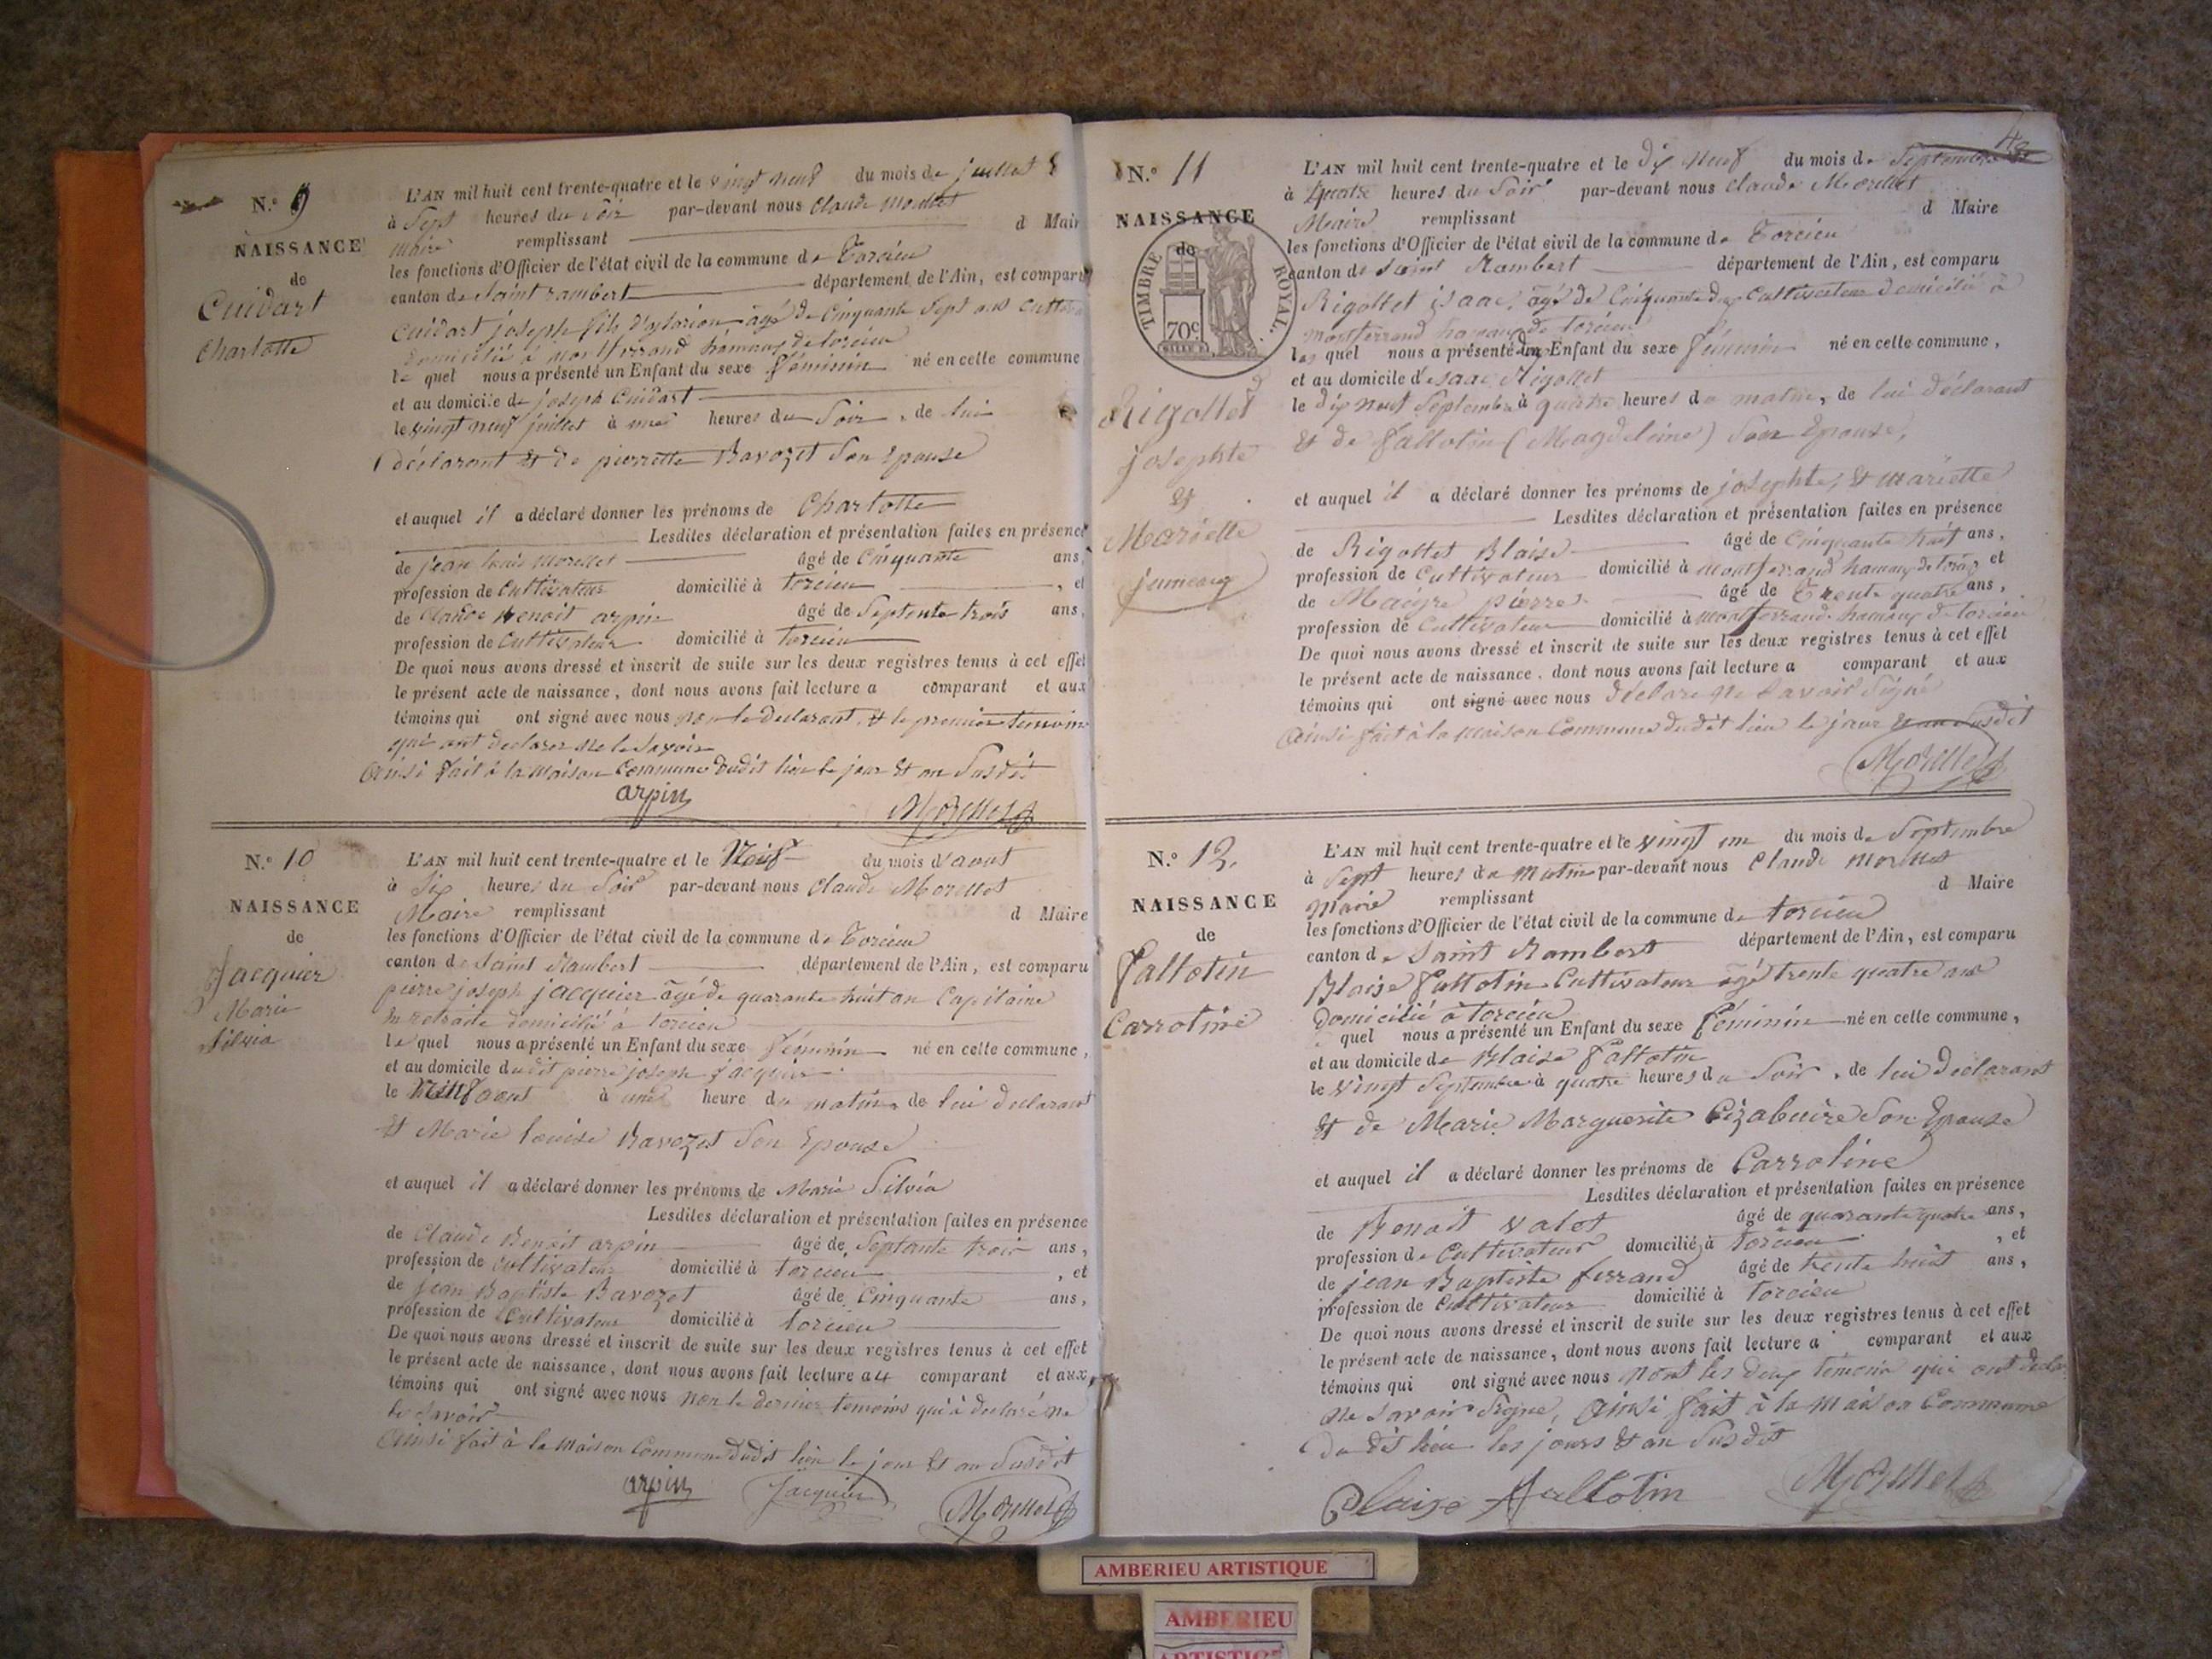 N.° 9
NAISSANCE
de
Cuidart
Charlotte
L'AN mil huit cent trente-quatre et le vingt neuf du mois de juillet
à Sept heures du Soir par-devant nous Claude Morellet
Maire remplissant d Maire
les fonctions d'Officier de l'état civil de la commune de Torcieu
canton de Saint rambert département de l'Ain, est comparu
Cuidart joseph fils d' âgé de Cinquante Sept ans
domicilié à montferrand hameau de torcieu
le quel nous a présenté un Enfant du sexe féminin né en celle commune
et au domicile de joseph Cuidart
le vingt neuf juillet à une heures du Soir, de lui
déclarant et de pierrette Ravozet Son Epouse
et auquel il a déclaré donner les prénoms de Charlotte
Lesdites déclaration et présentation faites en présence
de jean louis morellet âgé de Cinquante ans,
profession de Cultivateur domicilié à torcieu, et
de Claude Benoit arpin âgé de Septente trois ans,
profession de Cultivateur domicilié à torcieu
De quoi nous avons dressé et inscrit de suite sur les deux registres tenus à cet effet
le présent acte de naissance, dont nous avons fait lecture a comparant et aux
témoins qui ont signé avec nous non le declarant, et le premier temoins
qui ont declarer ne le Savoir
Ainsi fait à la Maison Commune dudit lieu le jour et an Susdit
arpin Morellet
N.° 10
NAISSANCE
de
Jacquier
Marie
Silvia
L'AN mil huit cent trente-quatre et le Neuf du mois d'aout
à Six heures du Soir par-devant nous Claude Morellet
Maire remplissant d Maire
les fonctions d'Officier de l'état civil de la commune de Torcieu
canton de Saint Rambert département de l'Ain, est comparu
pierre joseph jacquier âgé de quarante huit an Capitaine
En retraite domicilié à torcieu
le quel nous a présenté un Enfant du sexe féminin né en celle commune,
et au domicile dudit pierre joseph jacquier
le Neuf aout à une heure du matin, de lui declarant
et Marie louise Ravozet Son Epouse
et auquel il a déclaré donner les prénoms de Marie Silvia
Lesdites déclaration et présentation faites en présence
de Claude Benoit arpin âgé de Septante trois ans,
profession de Cultivateur domicilié à torcieu, et
de jean Baptiste Ravozet âgé de Cinquante ans,
profession de Cultivateur domicilié à torcieu
De quoi nous avons dressé et inscrit de suite sur les deux registres tenus à cet effet
le présent acte de naissance, dont nous avons fait lecture au comparant et aux
témoins qui ont signé avec nous non le dernier temoins qui à declaré ne
le Savoir
Ainsi fait à la Maison Commune dudit lieu le jour et an Susdit
arpin Jacquier Morellet
N.° 11
NAISSANCE
de
TIMBRE ROYAL.
70c
Rigollet
josephte
et
Mariette
jumeaux
L'AN mil huit cent trente-quatre et le dix neuf du mois de Septembre
à quatre heures du Soir par-devant nous Claude Morellet
Maire remplissant d Maire
les fonctions d'Officier de l'état civil de la commune de Torcieu
canton de Saint Rambert département de l'Ain, est comparu
Rigollet isaac, âgé de Cultivateur domicilié à
montferrand hameau de torcieu
le quel nous a présenté Enfant du sexe féminin né en celle commune,
et au domicile d'isaac Rigollet
le dix neuf Septembre à quatre heures du matin, de lui déclarant
et de fallotin (Magdeleine) Son Epouse,
et auquel il a déclaré donner les prénoms de josephte, et mariette
Lesdites déclaration et présentation faites en présence
de Rigollet Blaise âgé de Cinquante huit ans,
profession de Cultivateur domicilié à montferrand hameau de torcieu et
de Maigre pierre âgé de Trente quatre ans,
profession de Cultivateur domicilié à montferrand hameau de torcieu
De quoi nous avons dressé et inscrit de suite sur les deux registres tenus à cet effet
le présent acte de naissance, dont nous avons fait lecture a comparant et aux
témoins qui ont signé avec nous déclare ne Savoir Signé
Ainsi fait à la maison Commune dudit lieu le jour et an Susdit
Morellet
N.° 12.
NAISSANCE
de
Fallotin
Carroline
L'AN mil huit cent trente-quatre et le vingt un du mois de Septembre
à Sept heures du Matin par-devant nous Claude Morellet
Maire remplissant d Maire
les fonctions d'Officier de l'état civil de la commune de torcieu
canton de Saint Rambert département de l'Ain, est comparu
Blaise Fallotin Cultivateur âgé trente quatre ans
Domicilié à torcieu
quel nous a présenté un Enfant du sexe féminin né en celle commune,
et au domicile de Blaise Fallotin
le vingt Septembre à quatre heures du Soir, de lui declarant
et de Marie Marguerite Son Epouse
et auquel il a déclaré donner les prénoms de Carroline
Lesdites déclaration et présentation faites en présence
de Benoit valot âgé de quarante quatre ans,
profession de Cultivateur domicilié à torcieu, et
de jean Baptiste ferrand âgé de trente huit ans,
profession de Cultivateur domicilié à Torcieu
De quoi nous avons dressé et inscrit de suite sur les deux registres tenus à cet effet
le présent acte de naissance, dont nous avons fait lecture a comparant et aux
témoins qui ont signé avec nous non les deux témoin qui ont
ne Savoir Signe, Ainsi fait à la maison Commune
du dit lieu les jours et an Susdit
Blaise Fallotin Morellet
AMBERIEU ARTISTIQUE
AMBERIEU